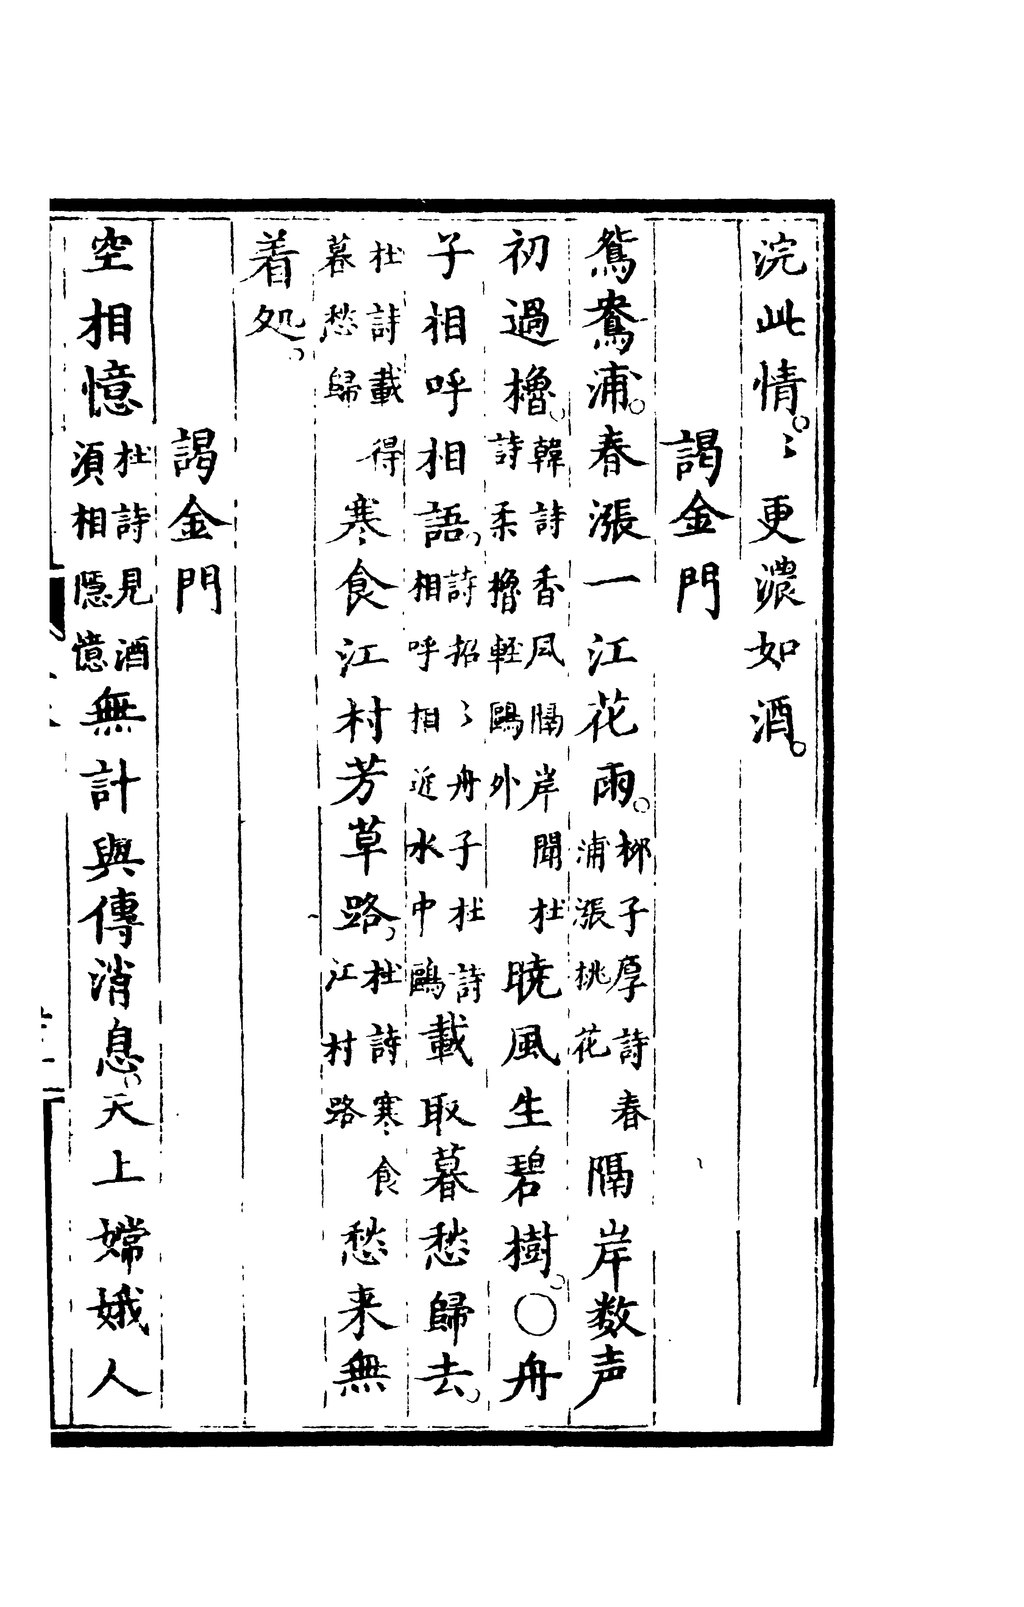 浣此情。〻更濃如酒。
謁金門
鴛鴦浦。春漲一江花雨。栁子厚詩春浦漲桃花隔岸数声
初過櫓。韓詩香风隔岸聞杜詩柔櫓軽鷗外暁風生碧樹。〇舟
子相呼相語。詩招〻舟子杜詩相呼相近水中鷗載取暮愁歸去。
杜詩載得暮愁歸寒食江村芳草路。杜詩寒食江村路愁来無
着処。
謁金門
空相憶杜詩見酒須相隠憶無計與傳消息。天上嫦娥人